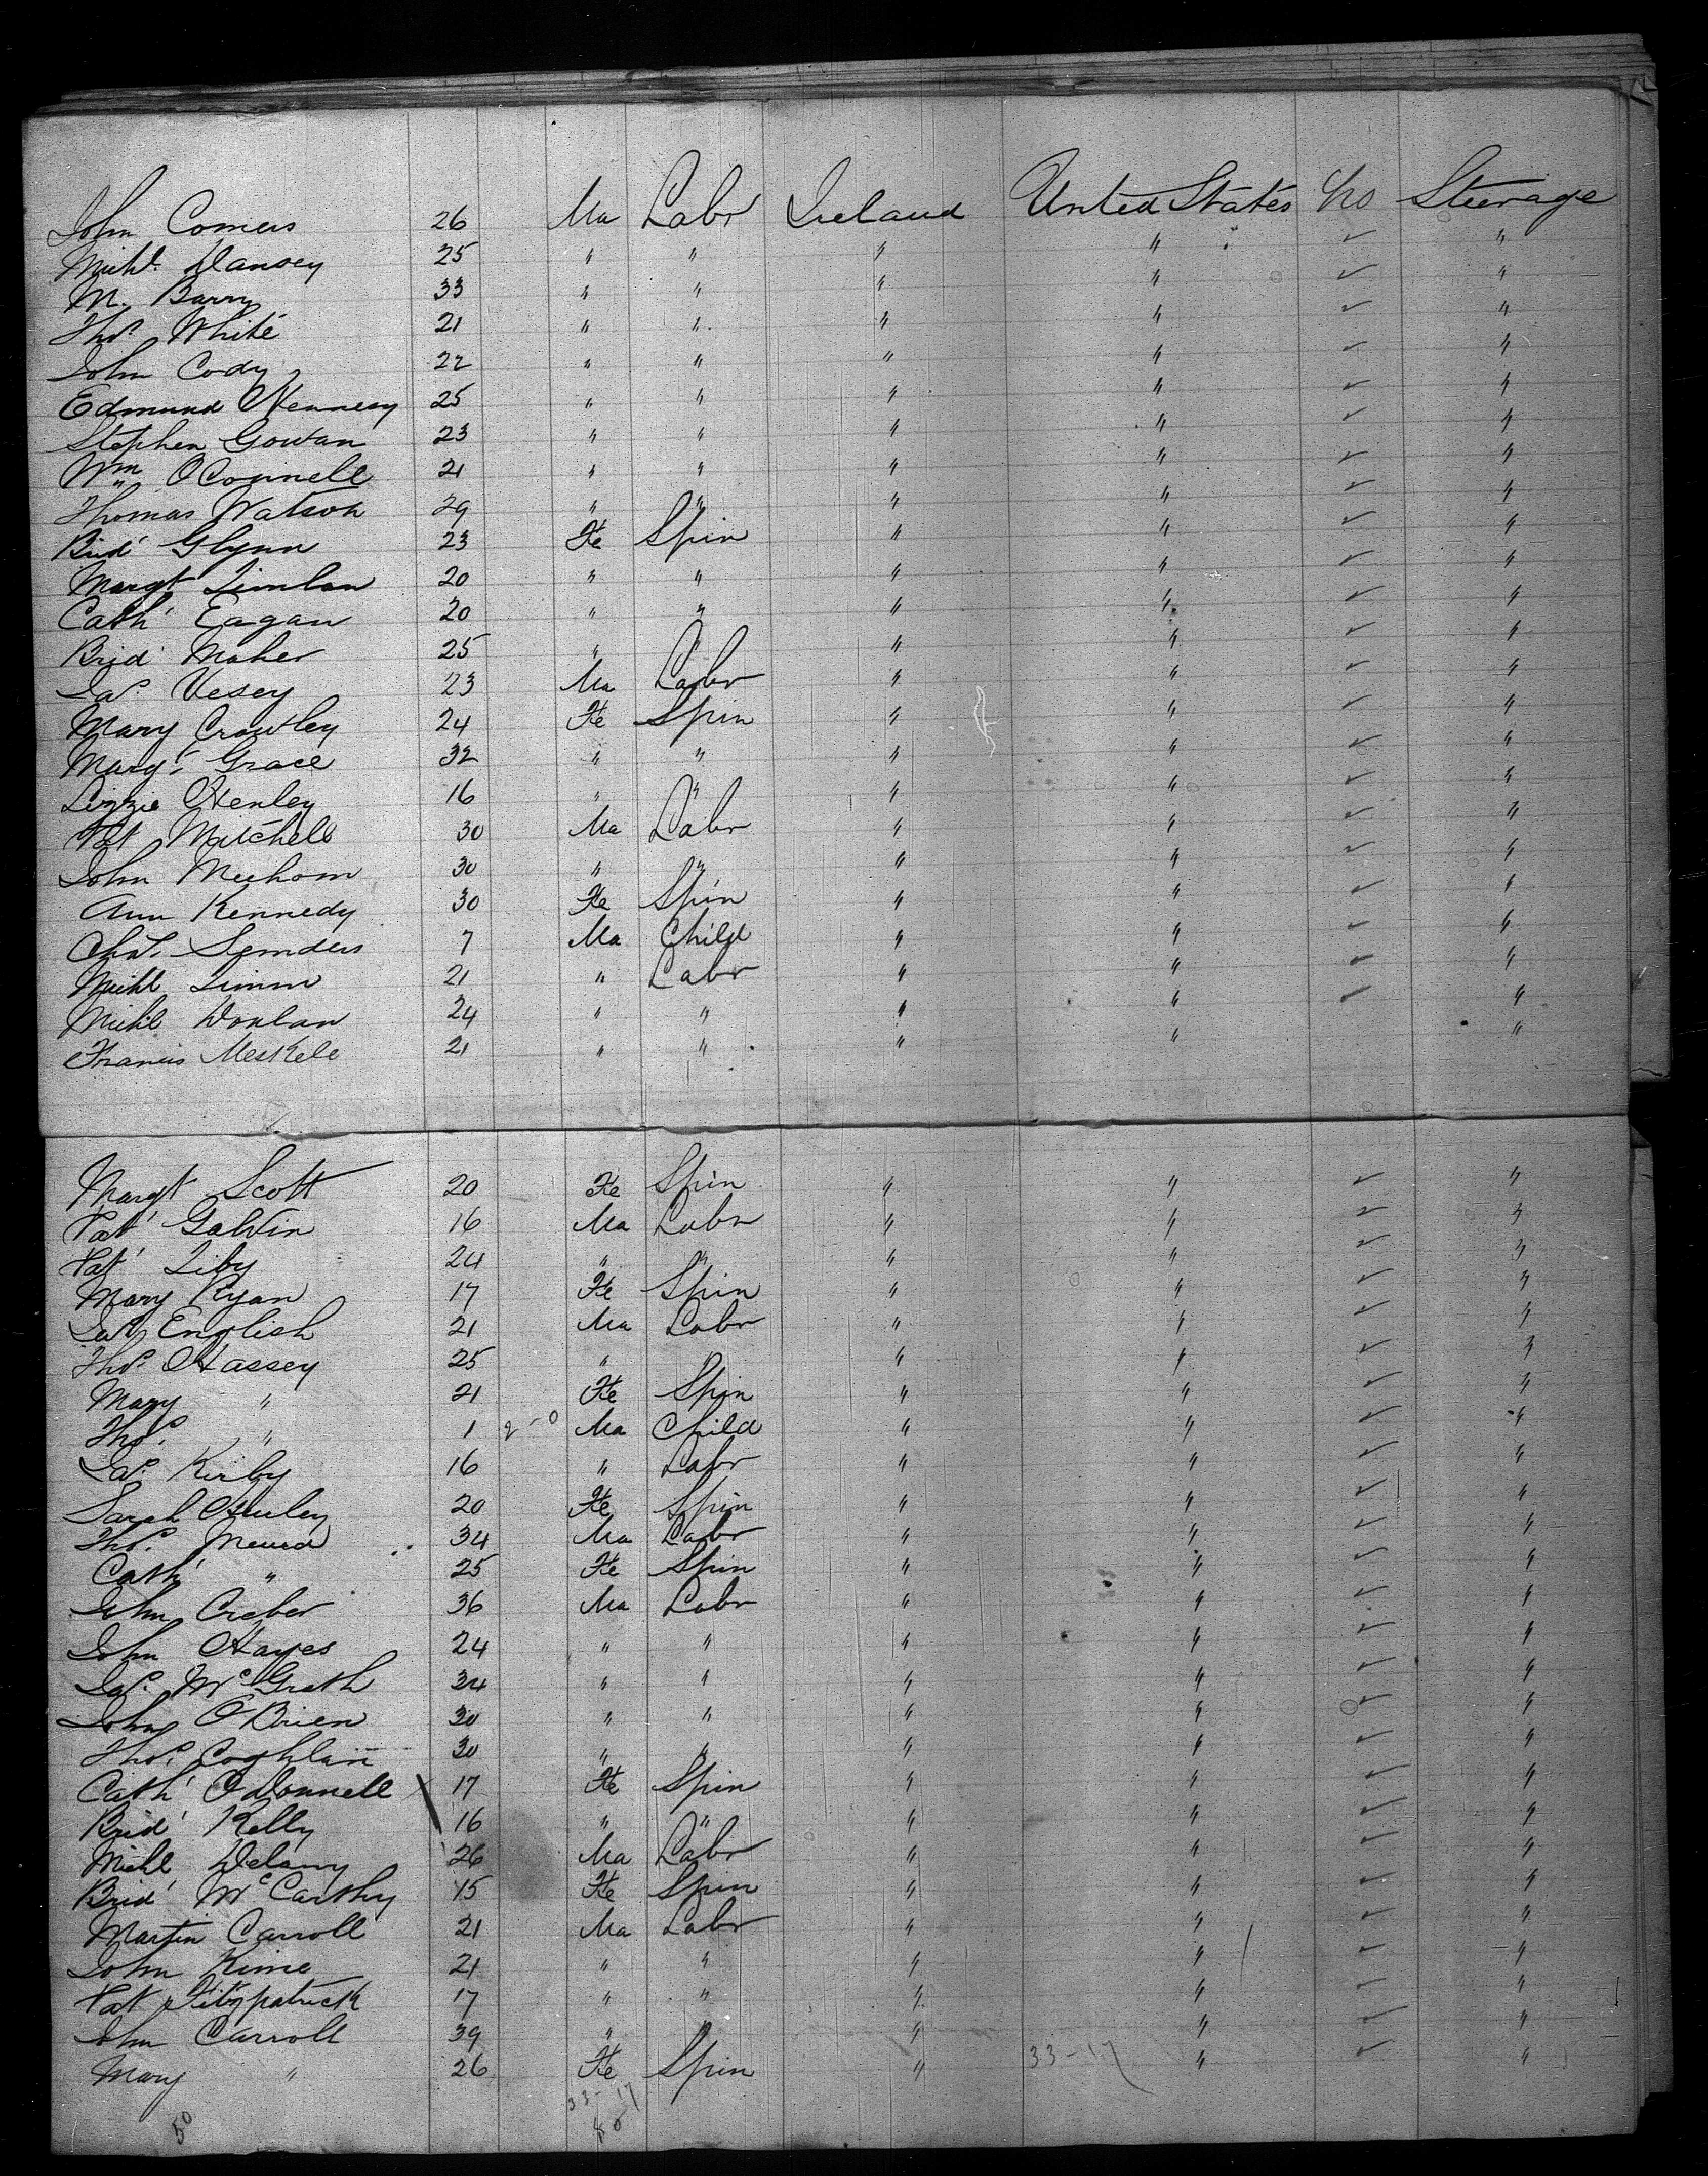 John Comers 26 Ma Labr Ireland United States No Steerage
Michl. Dansey 25 " " " " ✓ "
M. Barry 33 " " " " ✓ "
Thos. White 21 " " " " ✓ "
John Cody 22 " " " " ✓ "
Edmund Hennesy 25 " " " " ✓ "
Stephen Gowan 23 " " " " ✓ "
Wm O'Connell 21 " " " " ✓ "
Thomas Watson 29 " " " " ✓ "
Brid' Glynn 23 Fe Spin " " ✓ "
Margt 20 " " " " ✓ "
Cath' Eagan 20 " " " " ✓ "
Brid' Maher 25 " " " " ✓ "
Jas. Vesey 23 Ma Labr " " ✓ "
Mary Crowley 24 Fe Spin " " ✓ "
Margt. Grace 32 " " " " ✓ "
Lizzie Henley 16 " " " " ✓ "
Pat Mitchell 30 Ma Labr " " ✓ "
John Meehom 30 " " " " ✓ "
Ann Kennedy 30 Fe Spin " " ✓ "
Chas. 7 Ma Child " " ✓ "
Michl 21 " Labr " " ✓ "
Michl Donlan 24 " " " " ✓ "
Francis Meskell 21 " " " " "
Margt Scott 20 Fe Spin " " ✓ "
Pat' Galvin 16 Ma Labr " " ✓ "
Pat' 24 " " " " ✓ "
Mary Ryan 17 Fe Spin " " ✓ "
Jas. English 21 Ma Labr " " ✓ "
Thos. Hassey 25 " " " " ✓ "
Mary " 21 Fe Spin " " ✓ "
Thos. " 1 2-0 Ma Child " " ✓ "
Jas. Kirby 16 " Labr " " ✓ "
Sarah Hurley 20 Fe Spin " " ✓ "
Thos. 34 Ma Labr " " ✓ "
Cath' " 25 Fe Spin " " ✓ "
John Creber 36 Ma Labr " " ✓ "
John Hayes 24 " " " " ✓ "
Jas. McGrath 34 " " " " ✓ "
John O'Brien 30 " " " " ✓ "
Thos. Coghlan 30 " " " " ✓ "
Cath' O'Donnell 17 Fe Spin " " ✓ "
Brid' Kelly 16 " " " " ✓ "
Michl Delany 26 Ma Labr " " ✓ "
Brid' McCarthy 15 Fe Spin " " ✓ "
Martin Carroll 21 Ma Labr " " ✓ "
John Kime 21 " " " " ✓ "
Pat Fitzpatrick 17 " " " " ✓ "
John Carroll 39 " " " " ✓ "
Mary " 26 Fe Spin " 33-17 " ✓ "
33-17
50